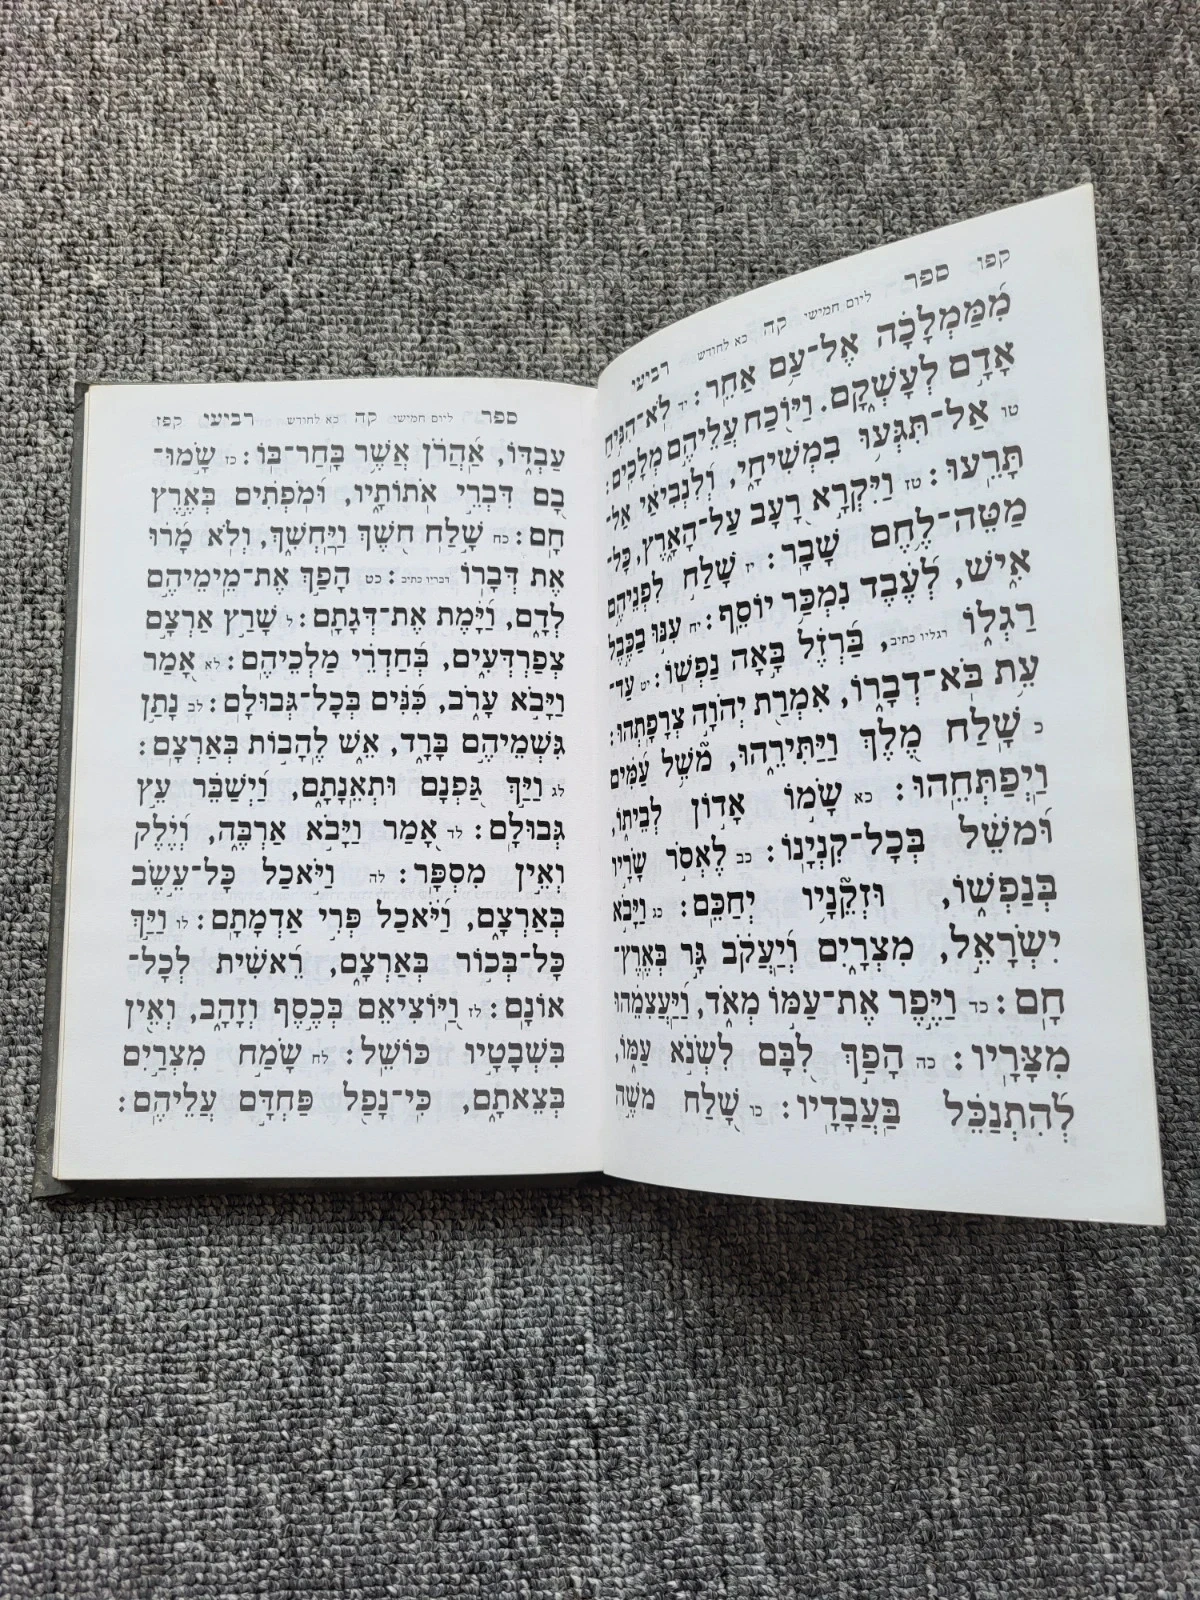 קפו ספר ליום חמישי קה כא לחודש רביעי
מִמַּמְלָכָה אֶל־עַם אַחֵר: יד לֹא־הִנִּיחַ
אָדָם לְעָשְׁקָם. וַיּוֹכַח עֲלֵיהֶם מְלָכִים:
טו אַל־תִּגְּעוּ בִמְשִׁיחָי, וְלִנְבִיאַי אַל־
תָּרֵעוּ: טז וַיִּקְרָא רָעָב עַל־הָאָרֶץ, כָּל־
מַטֵּה־לֶחֶם שָׁבָר: יז שָׁלַח לִפְנֵיהֶם
אִישׁ, לְעֶבֶד נִמְכַּר יוֹסֵף: יח עִנּוּ בַכֶּבֶל
רַגְלוֹ רגליו כתיב, בַּרְזֶל בָּאָה נַפְשׁוֹ: יט עַד־
עֵת בֹּא־דְבָרוֹ, אִמְרַת יְהוָה צְרָפָתְהוּ:
כ שָׁלַח מֶלֶךְ וַיַּתִּירֵהוּ, מֹשֵׁל עַמִּים
וַיְפַתְּחֵהוּ: כא שָׂמוֹ אָדוֹן לְבֵיתוֹ,
וּמֹשֵׁל בְּכָל־קִנְיָנוֹ: כב לֶאְסֹר שָׂרָיו
בְּנַפְשׁוֹ, וּזְקֵנָיו יְחַכֵּם: כג וַיָּבֹא
יִשְׂרָאֵל, מִצְרָיִם וְיַעֲקֹב גָּר בְּאֶרֶץ־
חָם: כד וַיֶּפֶר אֶת־עַמּוֹ מְאֹד, וַיַּעֲצִמֵהוּ
מִצָּרָיו: כה הָפַךְ לִבָּם לִשְׂנֹא עַמּוֹ,
לְהִתְנַכֵּל בַּעֲבָדָיו: כו שָׁלַח מֹשֶׁה
ספר ליום חמישי קה כא לחודש רביעי קפז
עַבְדּוֹ, אַהֲרֹן אֲשֶׁר בָּחַר־בּוֹ: כז שָׂמוּ־
בָם דִּבְרֵי אֹתוֹתָיו, וּמֹפְתִים בְּאֶרֶץ
חָם: כח שָׁלַח חֹשֶׁךְ וַיַּחְשִׁךְ, וְלֹא מָרוּ
אֶת דְּבָרוֹ דבריו כתיב: כט הָפַךְ אֶת־מֵימֵיהֶם
לְדָם, וַיָּמֶת אֶת־דְּגָתָם: ל שָׁרַץ אַרְצָם
צְפַרְדְּעִים, בְּחַדְרֵי מַלְכֵיהֶם: לא אָמַר
וַיָּבֹא עָרֹב, כִּנִּים בְּכָל־גְּבוּלָם: לב נָתַן
גִּשְׁמֵיהֶם בָּרָד, אֵשׁ לֶהָבוֹת בְּאַרְצָם:
לג וַיַּךְ גַּפְנָם וּתְאֵנָתָם, וַיְשַׁבֵּר עֵץ
גְּבוּלָם: לד אָמַר וַיָּבֹא אַרְבֶּה, וְיֶלֶק
וְאֵין מִסְפָּר: לה וַיֹּאכַל כָּל־עֵשֶׂב
בְּאַרְצָם, וַיֹּאכַל פְּרִי אַדְמָתָם: לו וַיַּךְ
כָּל־בְּכוֹר בְּאַרְצָם, רֵאשִׁית לְכָל־
אוֹנָם: לז וַיּוֹצִיאֵם בְּכֶסֶף וְזָהָב, וְאֵין
בִּשְׁבָטָיו כּוֹשֵׁל: לח שָׂמַח מִצְרַיִם
בְּצֵאתָם, כִּי־נָפַל פַּחְדָּם עֲלֵיהֶם: